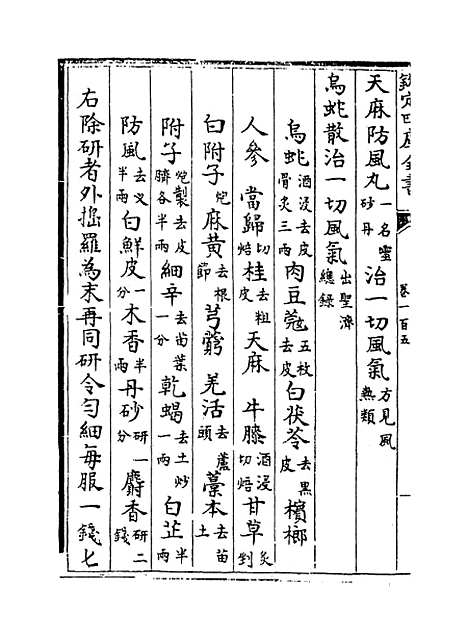 欽定四庫全書 卷一百五
天麻防風丸一名蜜砂丹治一切風氣方見風熱類
烏蛇散治一切風氣出聖濟總錄
烏蛇酒浸去皮骨炙三兩 肉豆蔻五枚去皮 白茯苓去黑皮 檳榔
人參 當歸切焙 桂去粗皮 天麻 牛膝酒浸切焙 甘草炙剉
白附子炮 麻黃去根節 芎藭 羌活去蘆頭 藁本去苗土
附子炮製去皮臍各半兩 細辛去苗葉一分 乾蝎去土炒一兩 白芷半兩
防風去叉半兩 白鮮皮一分 木香半兩 丹砂研一分 麝香研二錢
右除研者外搗羅為末再同研令勻細每服一錢七